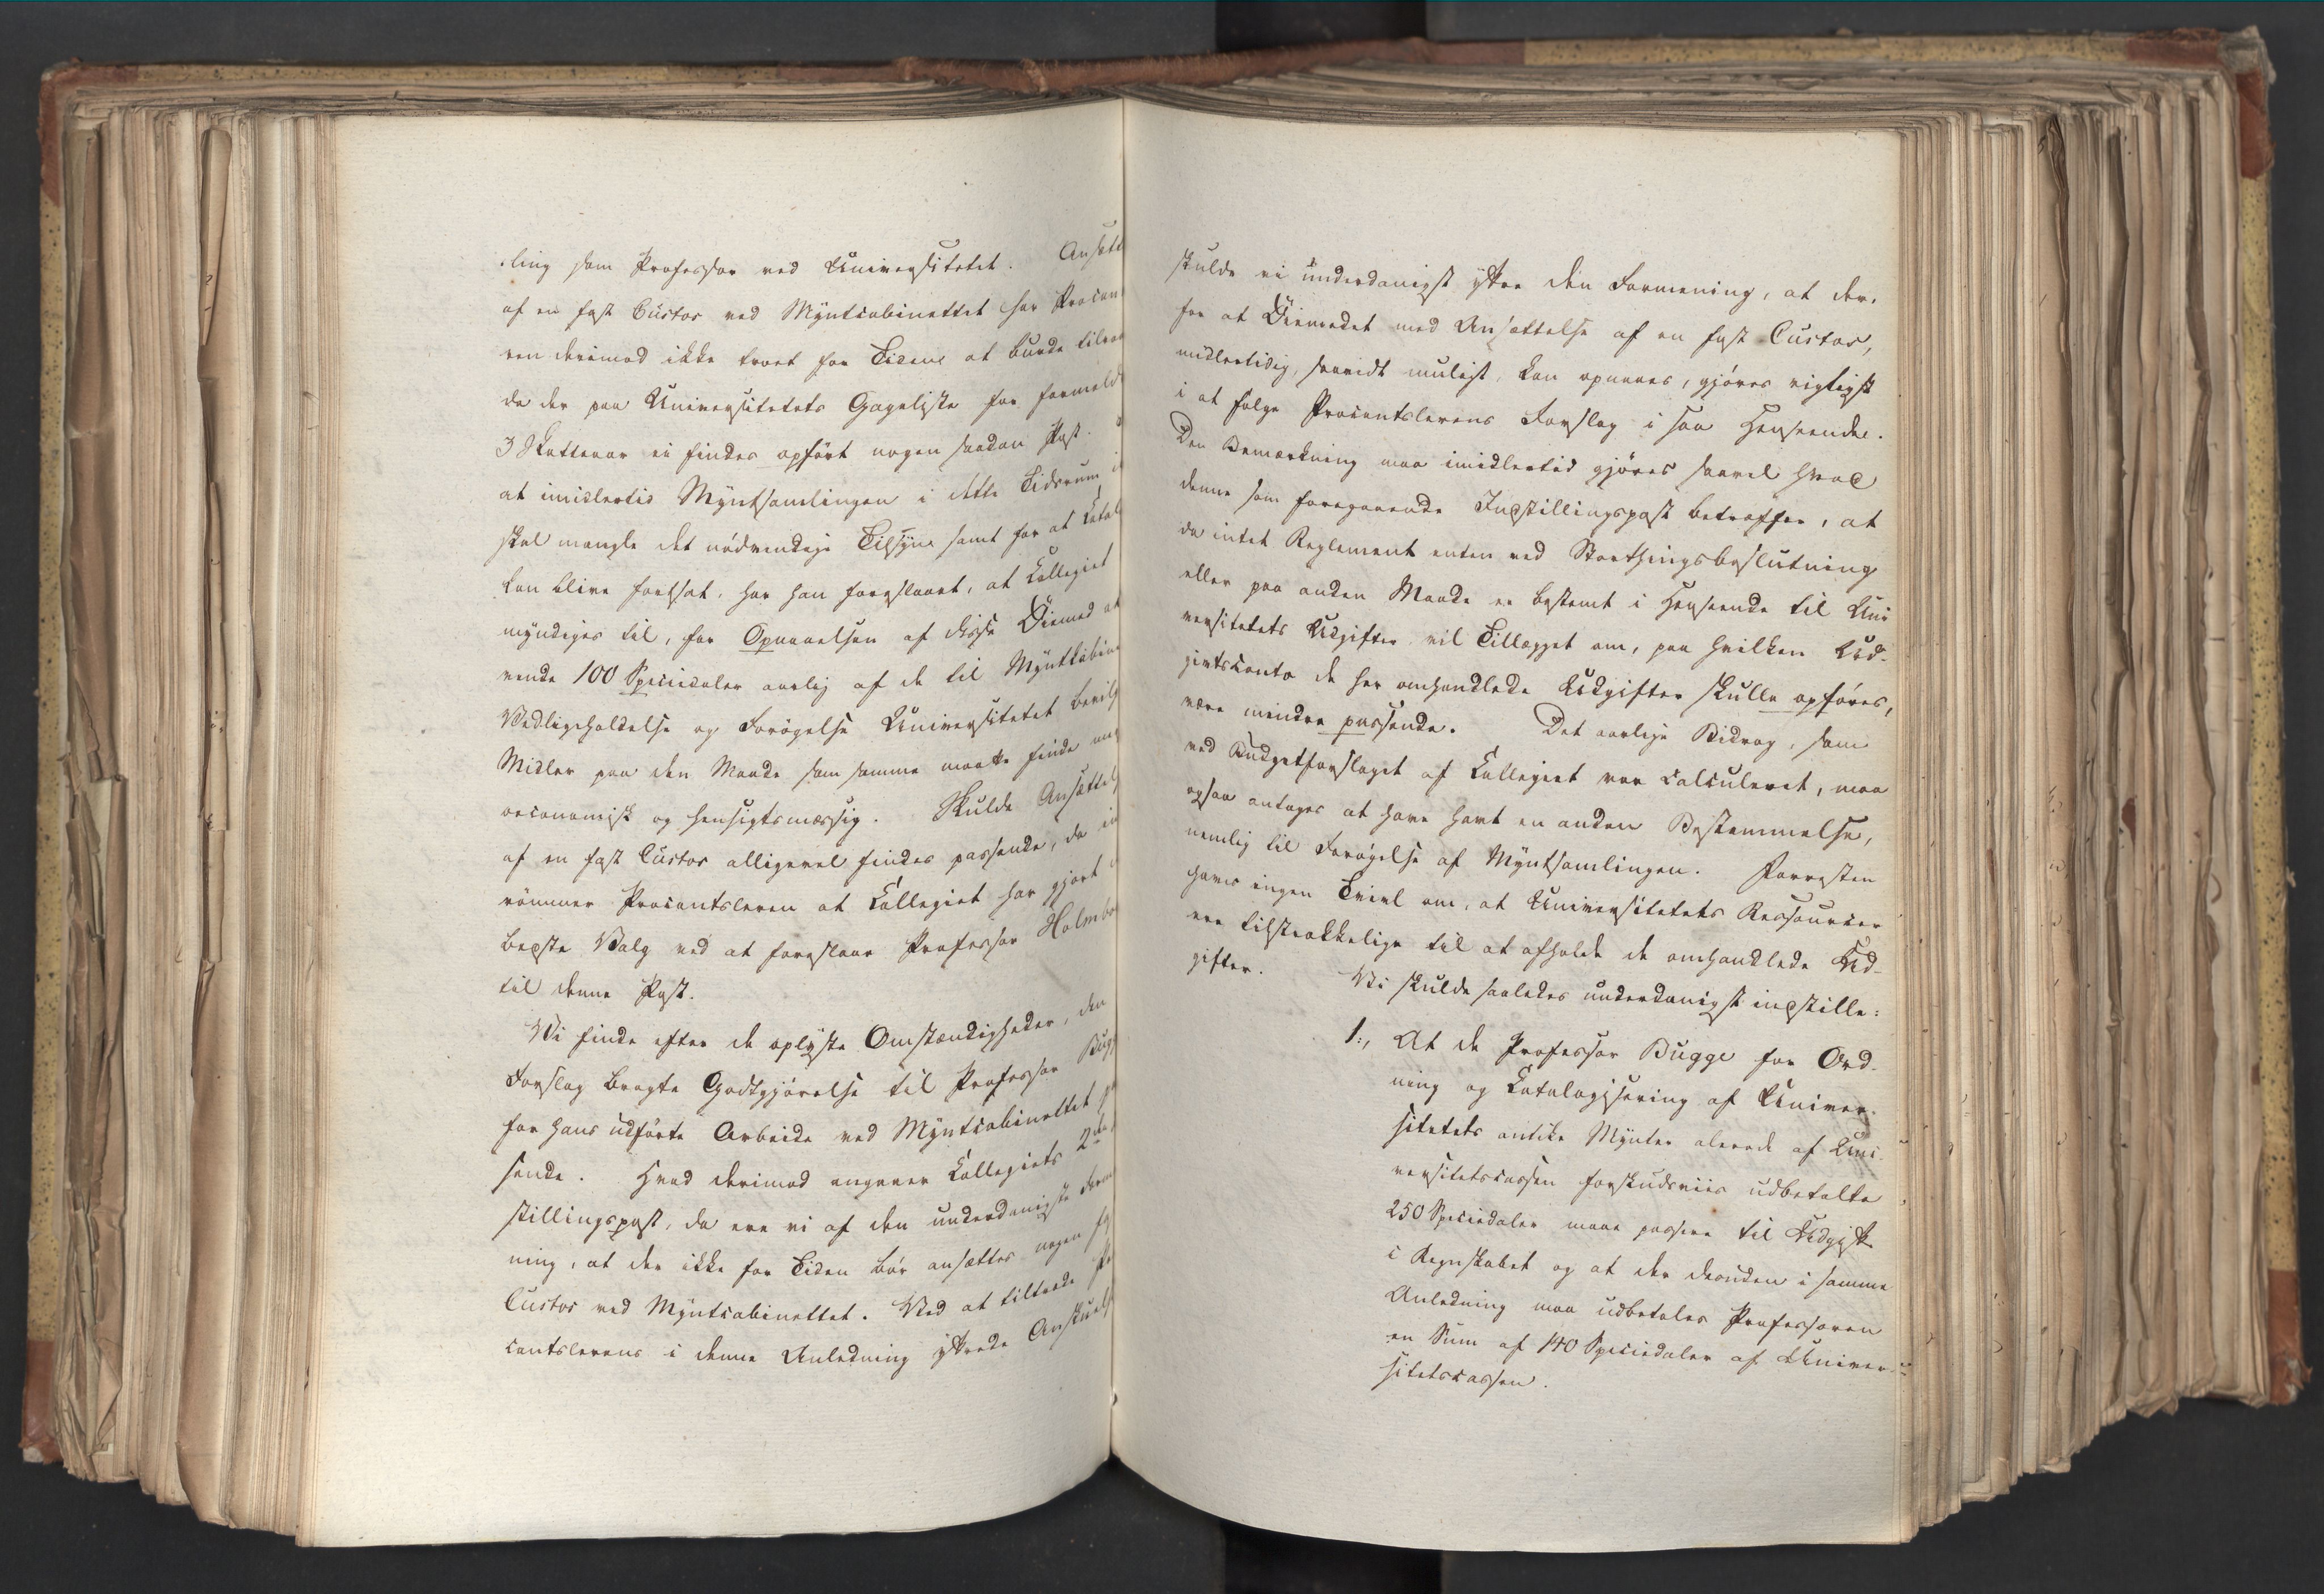 ling som Professor ved Universitetet. Ansætt
af en fast Custos ved Myntcabinettet har Procan
ren derimod ikke troet for Tiden at burde tilraa
da der paa Universitetets Gageliste for formeld
3 Skatteaar ei findes opført nogen saadan Post.
at imidlertid Myntsamlingen i dette Tidsrum
skal mangle det nødvendige Tilsyn samt for at Catal
kan blive fortsat, har han foreslaaet, at Collegiet
myndiges til, for Opnaaelsen af disse Øiemed at
vende 100 Speciedaler aarlig af de til Myntkabin
Vedligeholdelse og Forøgelse Universitetet bevilg
Midler paa den Maade som samme maatte finde m
oeconomisk og hensigtsmæssig. Skulde Ansættels
af en fast Custos alligevel findes passende, da
rømmer Procantsleren at Collegiet har gjort
bedste Valg ved at foreslaae Professor Holmbo
til denne Post.
Vi finde efter de oplyste Omstændigheder, den
Forslag bragte Godtgjørelse til Professor Bugg
for hans udførte Arbeide ved Myntcabinettet p
sende. Hvad derimod angaaer Collegiets 2den
stillingspost, da ere vi af den underdanigste Form
ning, at der ikke for Tiden bør ansættes nogen fa
Custos ved Myntcabinettet. Ved at tiltræde Pro
cantslerens i denne Anledning yttrede Anskuels
skulde vi underdanigst yttre den Formening, at der,
for at Øiemedet med Ansættelse af en fast Custos,
midlertidig, saavidt muligt, kan opnaaes, gjøres rigtigst
i at følge Procantslerens Forslag i saa Henseende.
Den Bemærkning maa imidlertid gjøres saavel hvad
denne som foregaaende Indstillingspost betræffer, at
da intet Reglement enten ved Storthingsbeslutning
eller paa anden Maade er bestemt i Henseende til Uni
versitetets Udgifter vil Tillægget om, paa hvilken Ud-
giftsconto de her omhandlede Udgifter skulle opføres,
være mindre passende. Det aarlige Bidrag, som
ved Budgetforslaget af Collegiet var calculeret, maa
ogsaa antages at have havt en anden Bestemmelse,
nemlig til Forøgelse af Myntsamlingen. Forresten
haves ingen Tvivl om, at Universitetets Ressourcer
ere tilstrækkelige til at afholde de omhandlede Ud-
gifter. Vi skulde saaledes underdanigst indstille:
1:, At de Professor Bugge for Ord-
ning og Catalogisering af Univer-
sitetets antike Mynter allerede af Uni-
versitetscassen forskudsviis udbetalte
250 Speciedaler maae passere til Udgift
i Regnskabet og at der desuden i samme
Anledning maa udbetales Professoren
en Sum af 140 Speciedaler af Univer-
sitetscassen.